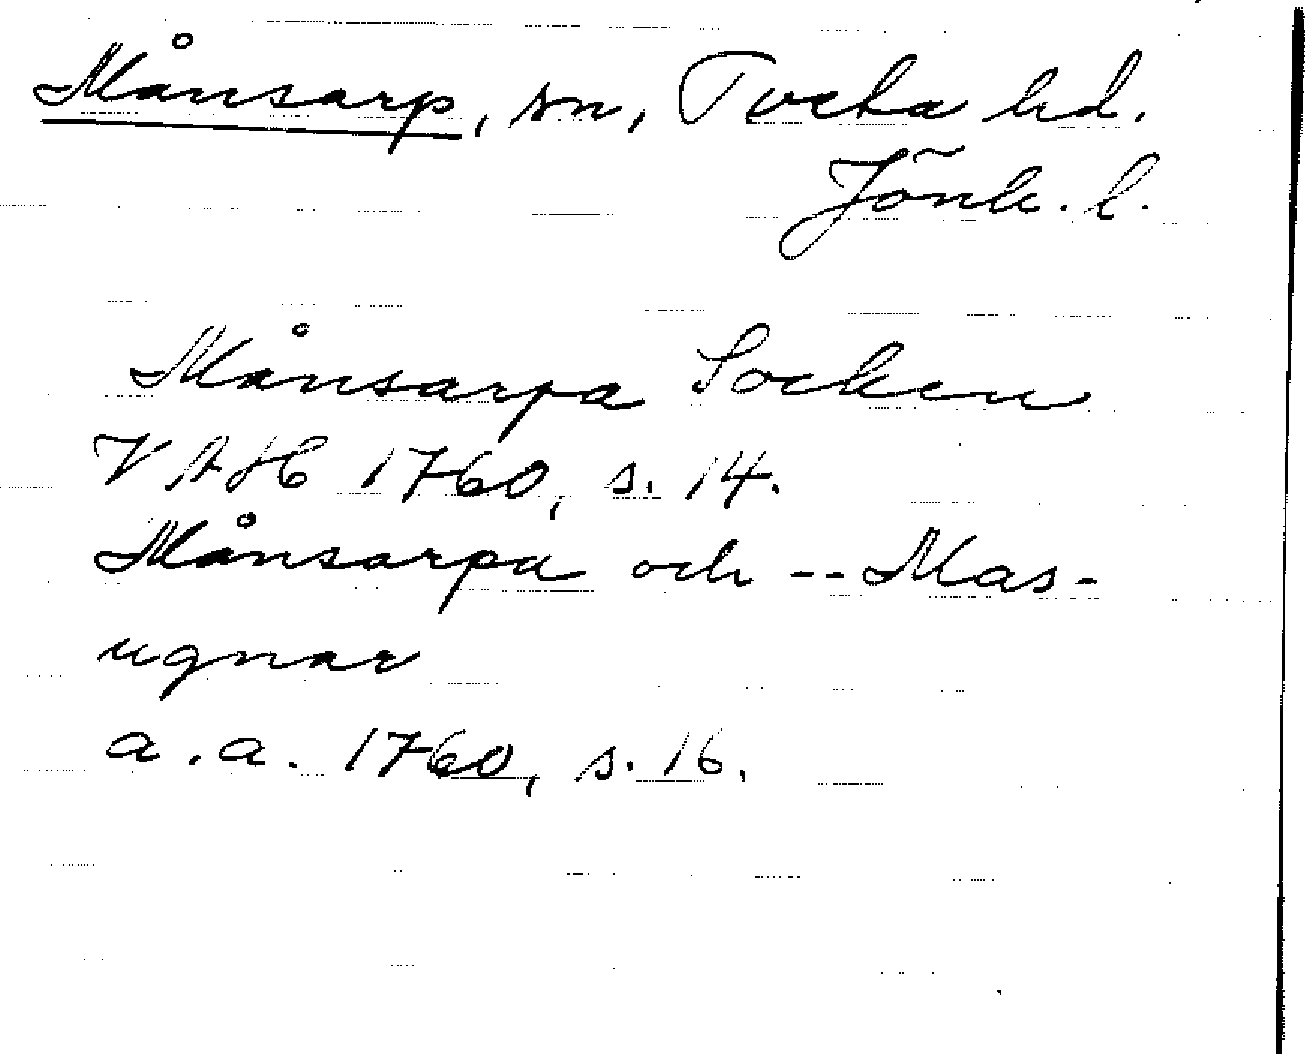 Månsarp, sn, Tveta hd.
Jönk. l.
Månsarpa Socken
VAH 1760, s. 14.
Månsarpa och -- Mas-
ugnar
a.a. 1760, s. 16.